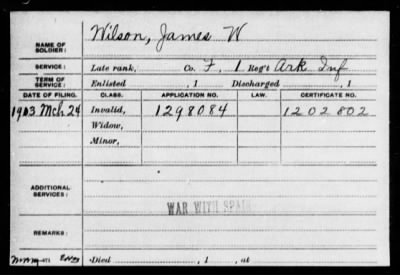 NAME OF SOLDIER: Wilson, James W
SERVICE: Late rank, Co. F, 1 Reg't Ark Inf
TERM OF SERVICE: Enlisted , 1 Discharged , 1
DATE OF FILING. CLASS. APPLICATION NO. LAW. CERTIFICATE NO.
1903 Mch 24 Invalid, 1298084 1202802
Widow,
Minor,
ADDITIONAL SERVICES:
WAR WITH SPAIN
REMARKS:
Died , 1 , at